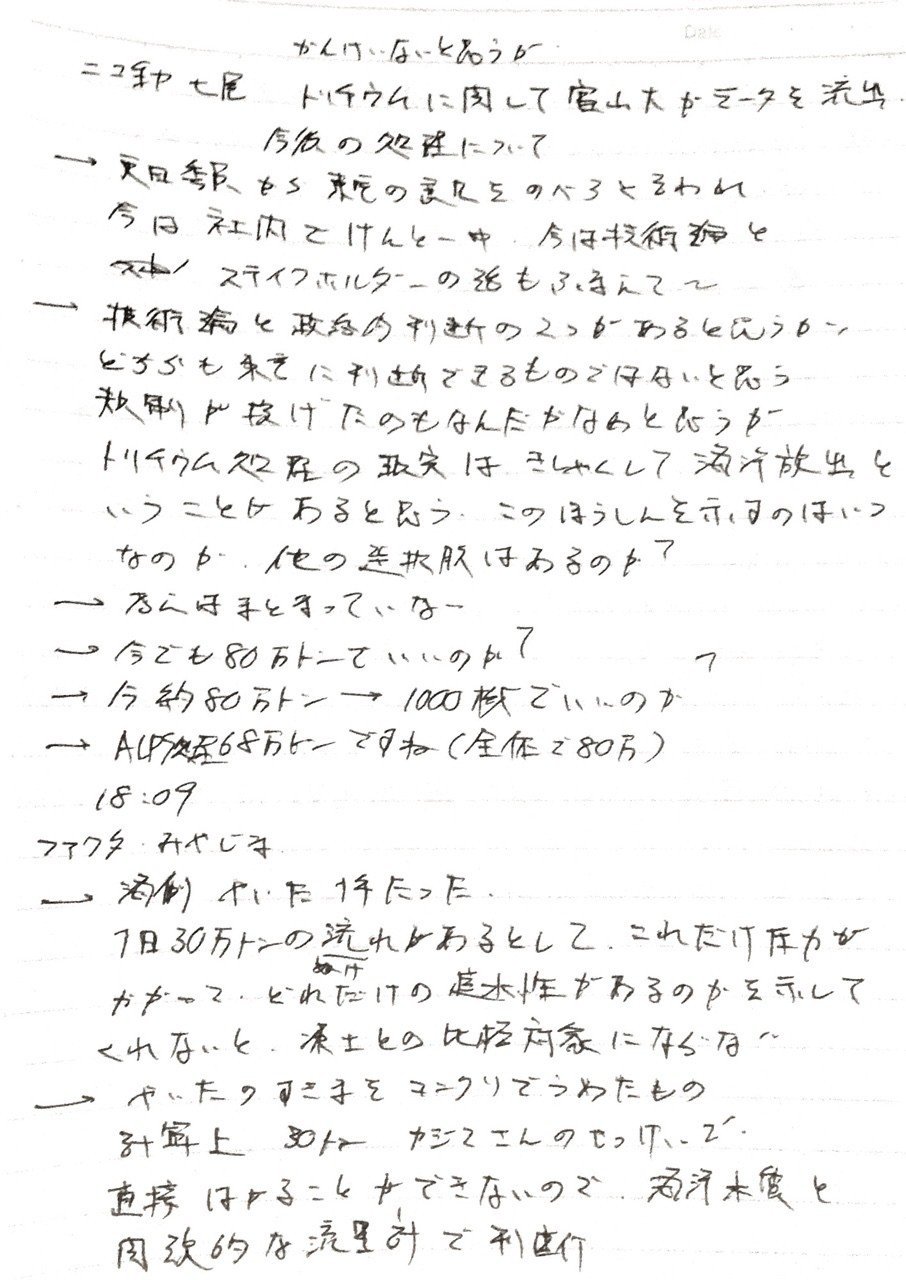 Date
かんけいないと思うが
ニコ動 七尾 トリチウムに関して富山大がデータを流出.
今後の処理について
→ 委員から東電の意見をのべろと言われ
今は社内でけんとー中. 今は技術論と
ステイクホルダーの話もふまえて〜
→ 技術論と政治的判断の2つがあると思うが
どちらも東電に判断できるものではないと思う
規制が投げたのもなんだがなあと思うが
トリチウム処理の現実はきしゃくして海洋放出と
いうことはあると思う. このほうしんを示すのはいつ
なのか. 他の選択肢はあるのか?
→ 考えはまとまっていなー
→ 今でも80万トンでいいのか?
→ 今約80万トン → 1000機でいいのか?
→ ALPS処理68万トンですね(全体で80万)
18:09
ファクタ みやじま
→ 海側 やいた 1年たった.
1日30万トンの流れがあるとして. これだけ圧力が
ぬけ
かかって. どれだけの透水性があるのかを示して
くれないと. 凍土との比較対象にならない
→ やいたのすきまをコンクリでうめたもの
計算上 30トン カジマさんのせっけいで.
直接はかることができないので. 海洋水質と
間欠的な流量計で判断